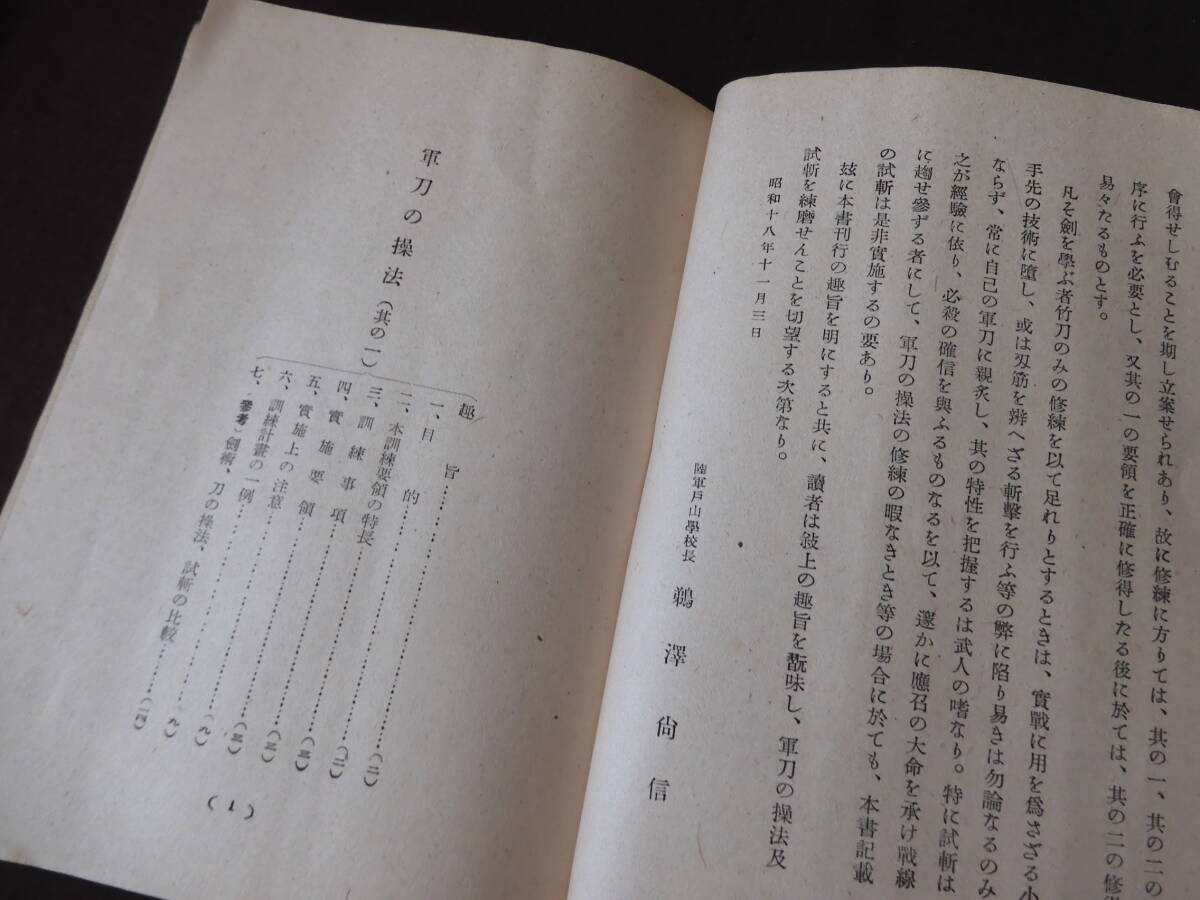 會得せしむることを期し立案せられあり、故に修練に方りては、其の一、其の二の
序に行ふを必要とし、又其の一の要領を正確に修得したる後に於ては、其の二の修
易々たるものとす。
凡そ劍を學ぶ者竹刀のみの修練を以て足れりとするときは、實戰に用を爲さざる小
手先の技術に墮し、或は刄筋を辨へざる斬擊を行ふ等の弊に陷り易きは勿論なるのみ
ならず、常に自己の軍刀に親炙し、其の特性を把握するは武人の嗜なり。特に試斬は
之が經驗に依り、必殺の確信を與ふるものなるを以て、邃かに應召の大命を承け戰線
に趨せ參ずる者にして、軍刀の操法の修練の暇なきとき等の場合に於ても、本書記載
の試斬は是非實施するの要あり。
玆に本書刊行の趣旨を明にすると共に、讀者は敍上の趣旨を翫味し、軍刀の操法及
試斬を練磨せんことを切望する次第なり。
昭和十八年十一月三日
陸軍戶山學校長 鵜澤尙信
軍刀の操法(其の一)
趣旨……(二)
一、目的……(二)
二、本訓練要領の特長……(三)
三、訓練事項……(三)
四、實施要領……(三)
五、實施上の注意……(八)
六、訓練計畫の一例……(九)
七、參考)劍術、刀の操法、試斬の比較……(一四)
(1)